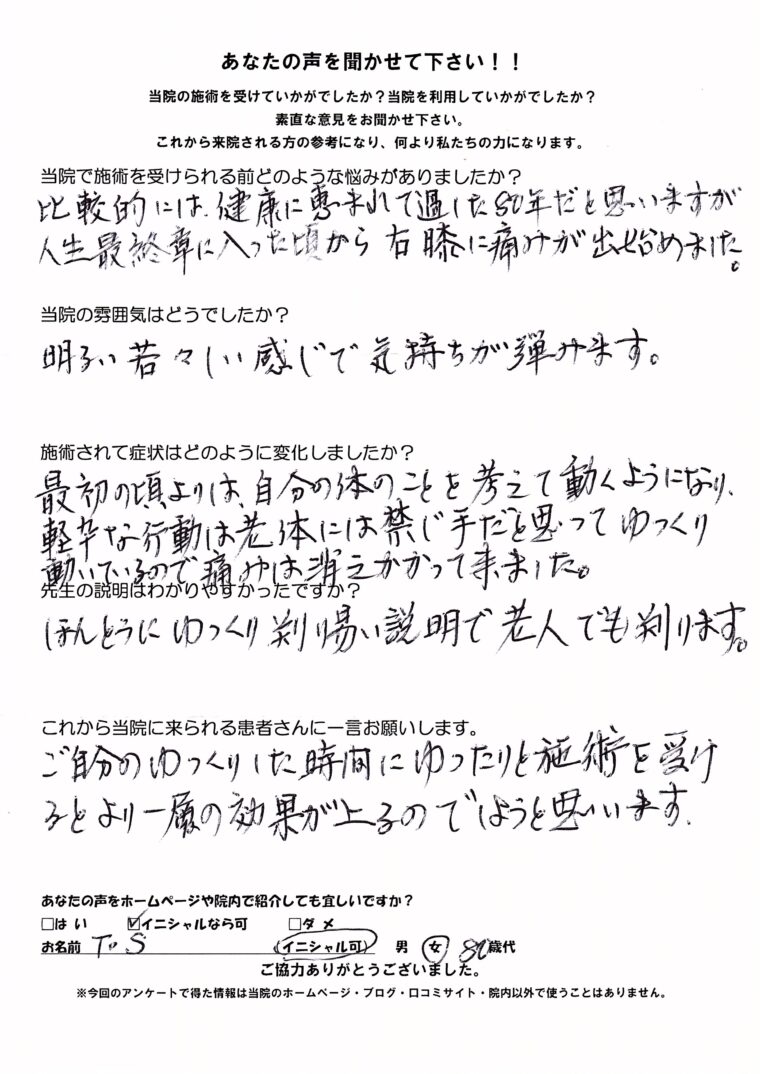 あなたの声を聞かせて下さい！！
当院の施術を受けていかがでしたか？当院を利用していかがでしたか？
素直な意見をお聞かせ下さい。
これから来院される方の参考になり、何より私たちの力になります。
当院で施術を受けられる前どのような悩みがありましたか？
比較的には、健康に恵まれて過した80年だと思いますが
人生最終章に入った頃から右膝に痛みが出始めました。
当院の雰囲気はどうでしたか？
明るい若々しい感じで気持ちが弾みます。
施術されて症状はどのように変化しましたか？
最初の頃よりは、自分の体のことを考えて動くようになり、
軽率な行動は老体には禁じ手だと思ってゆっくり
動いているので痛みは消えかかって来ました。
先生の説明はわかりやすかったですか？
ほんとうにゆっくり判り易い説明で老人でも判ります。
これから当院に来られる患者さんに一言お願いします。
ご自分のゆっくりした時間にゆったりと施術を受け
るとより一層の効果が上るのでしょうと思います.
あなたの声をホームページや院内で紹介しても宜しいですか？
□はい ☑イニシャルなら可 □ダメ
お名前 T.S (イニシャル可) 男 女 80歳代
ご協力ありがとうございました。
※今回のアンケートで得た情報は当院のホームページ・ブログ・口コミサイト・院内以外で使うことはありません。